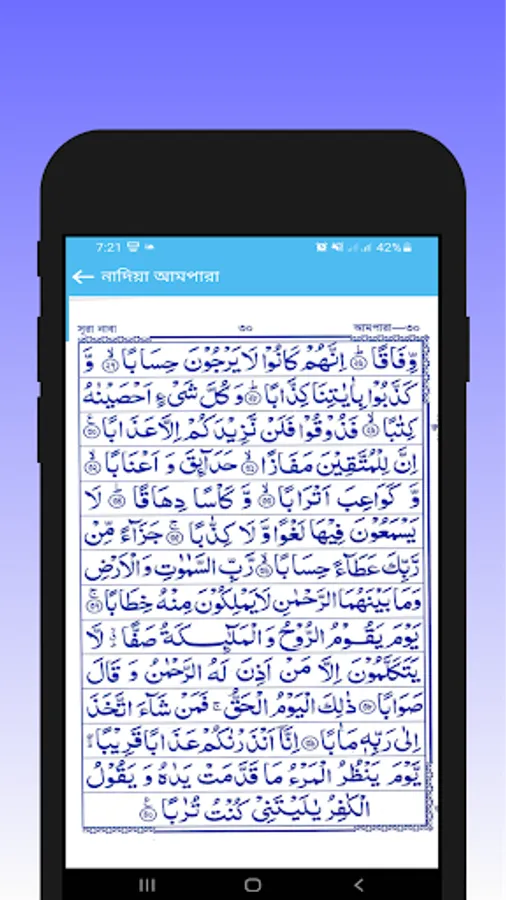 7:21 42%
← নাদিয়া আমপারা
সূরা নাবা ৩০ আমপারা—৩০
وِّفَاقًا ۝ اِنَّهُمْ كَانُوْا لَا يَرْجُوْنَ حِسَابًا ۝ وَّ
كَذَّبُوْا بِاٰيٰتِنَا كِذَّابًا ۝ وَ كُلَّ شَىْءٍ اَحْصَيْنٰهُ
كِتٰبًا ۝ فَذُوْقُوْا فَلَنْ نَّزِيْدَكُمْ اِلَّا عَذَابًا ۝
اِنَّ لِلْمُتَّقِيْنَ مَفَازًا ۝ حَدَآئِقَ وَ اَعْنَابًا ۝
وَّ كَوَاعِبَ اَتْرَابًا ۝ وَّ كَاْسًا دِهَاقًا ۝ لَا
يَسْمَعُوْنَ فِيْهَا لَغْوًا وَّ لَا كِذّٰبًا ۝ جَزَآءً مِّنْ
رَّبِّكَ عَطَآءً حِسَابًا ۝ رَّبِّ السَّمٰوٰتِ وَ الْاَرْضِ
وَ مَا بَيْنَهُمَا الرَّحْمٰنِ لَا يَمْلِكُوْنَ مِنْهُ خِطَابًا ۝
يَوْمَ يَقُوْمُ الرُّوْحُ وَ الْمَلٰٓئِكَةُ صَفًّا لَّا
يَتَكَلَّمُوْنَ اِلَّا مَنْ اَذِنَ لَهُ الرَّحْمٰنُ وَ قَالَ
صَوَابًا ۝ ذٰلِكَ الْيَوْمُ الْحَقُّ ۚ فَمَنْ شَآءَ اتَّخَذَ
اِلٰى رَبِّهٖ مَاٰبًا ۝ اِنَّآ اَنْذَرْنٰكُمْ عَذَابًا قَرِيْبًا
يَّوْمَ يَنْظُرُ الْمَرْءُ مَا قَدَّمَتْ يَدٰهُ وَ يَقُوْلُ
الْكٰفِرُ يٰلَيْتَنِىْ كُنْتُ تُرٰبًا ۝